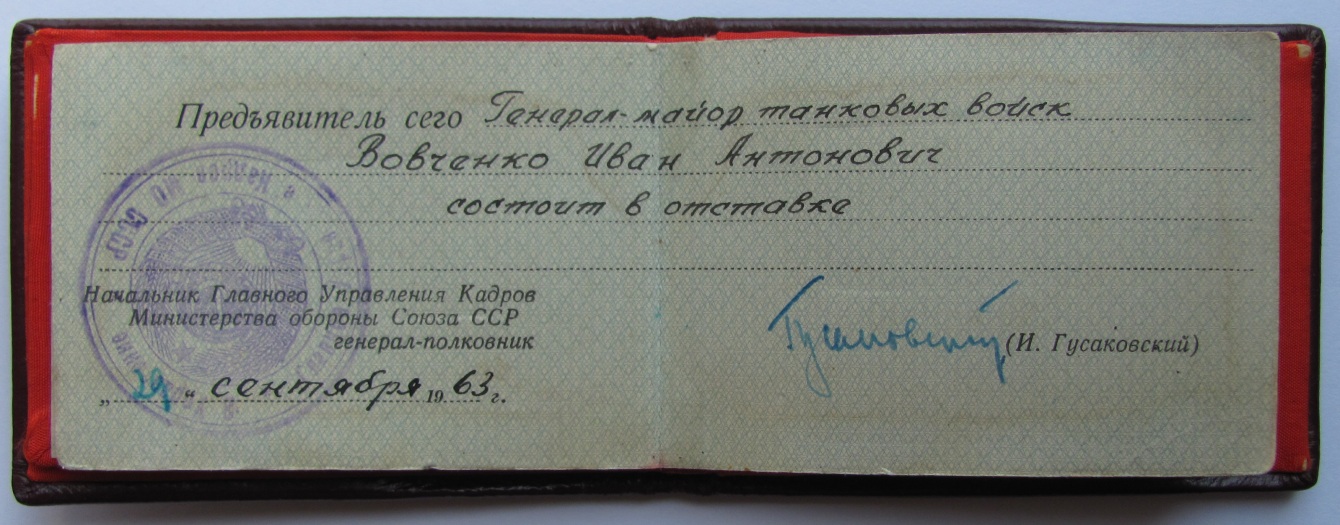 Предъявитель сего Генерал-майор танковых войск
Вовченко Иван Антонович
состоит в отставке
Начальник Главного Управления Кадров
Министерства обороны Союза ССР
генерал-полковник
Гусаковский (И. Гусаковский)
„ 29 “ сентября 1963 г.